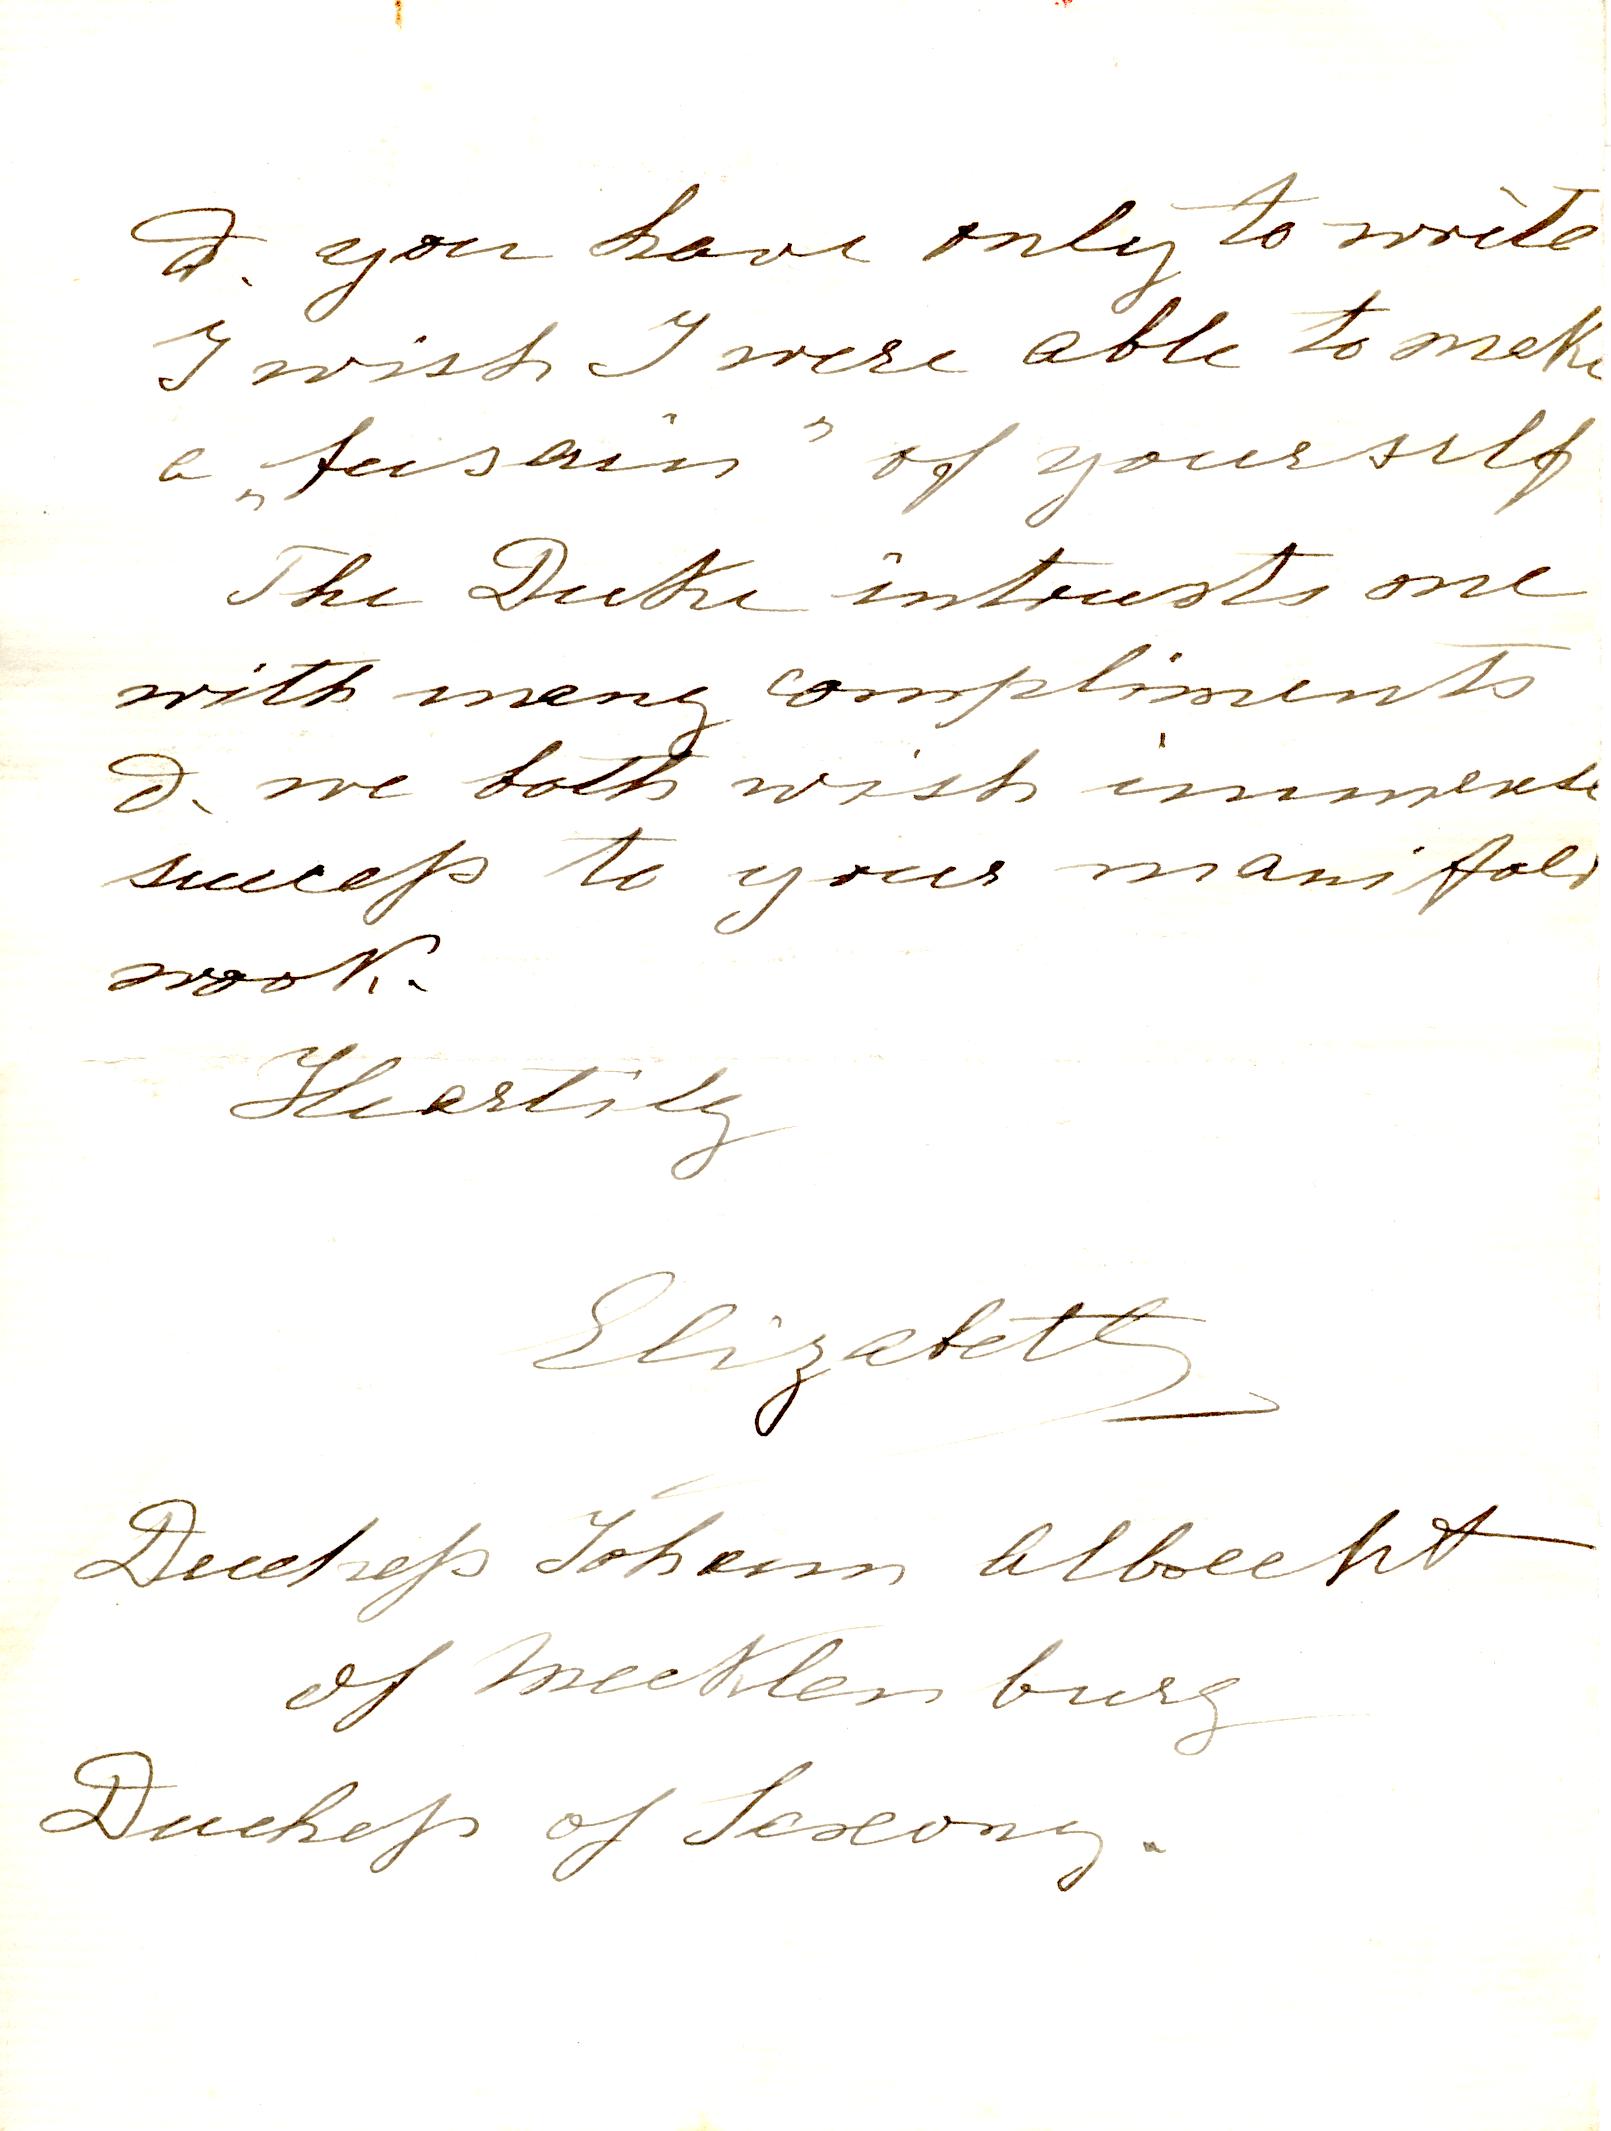 &. you have only to write
I wish I were able to make
a „fusain" of yourself
The Duke intrusts me
with many compliments
&. we both wish immense
success to your manifold
work.
Heartily
Elizabeth
Duchess Johann Albrecht
of Mecklenburg
Duchess of Saxony.